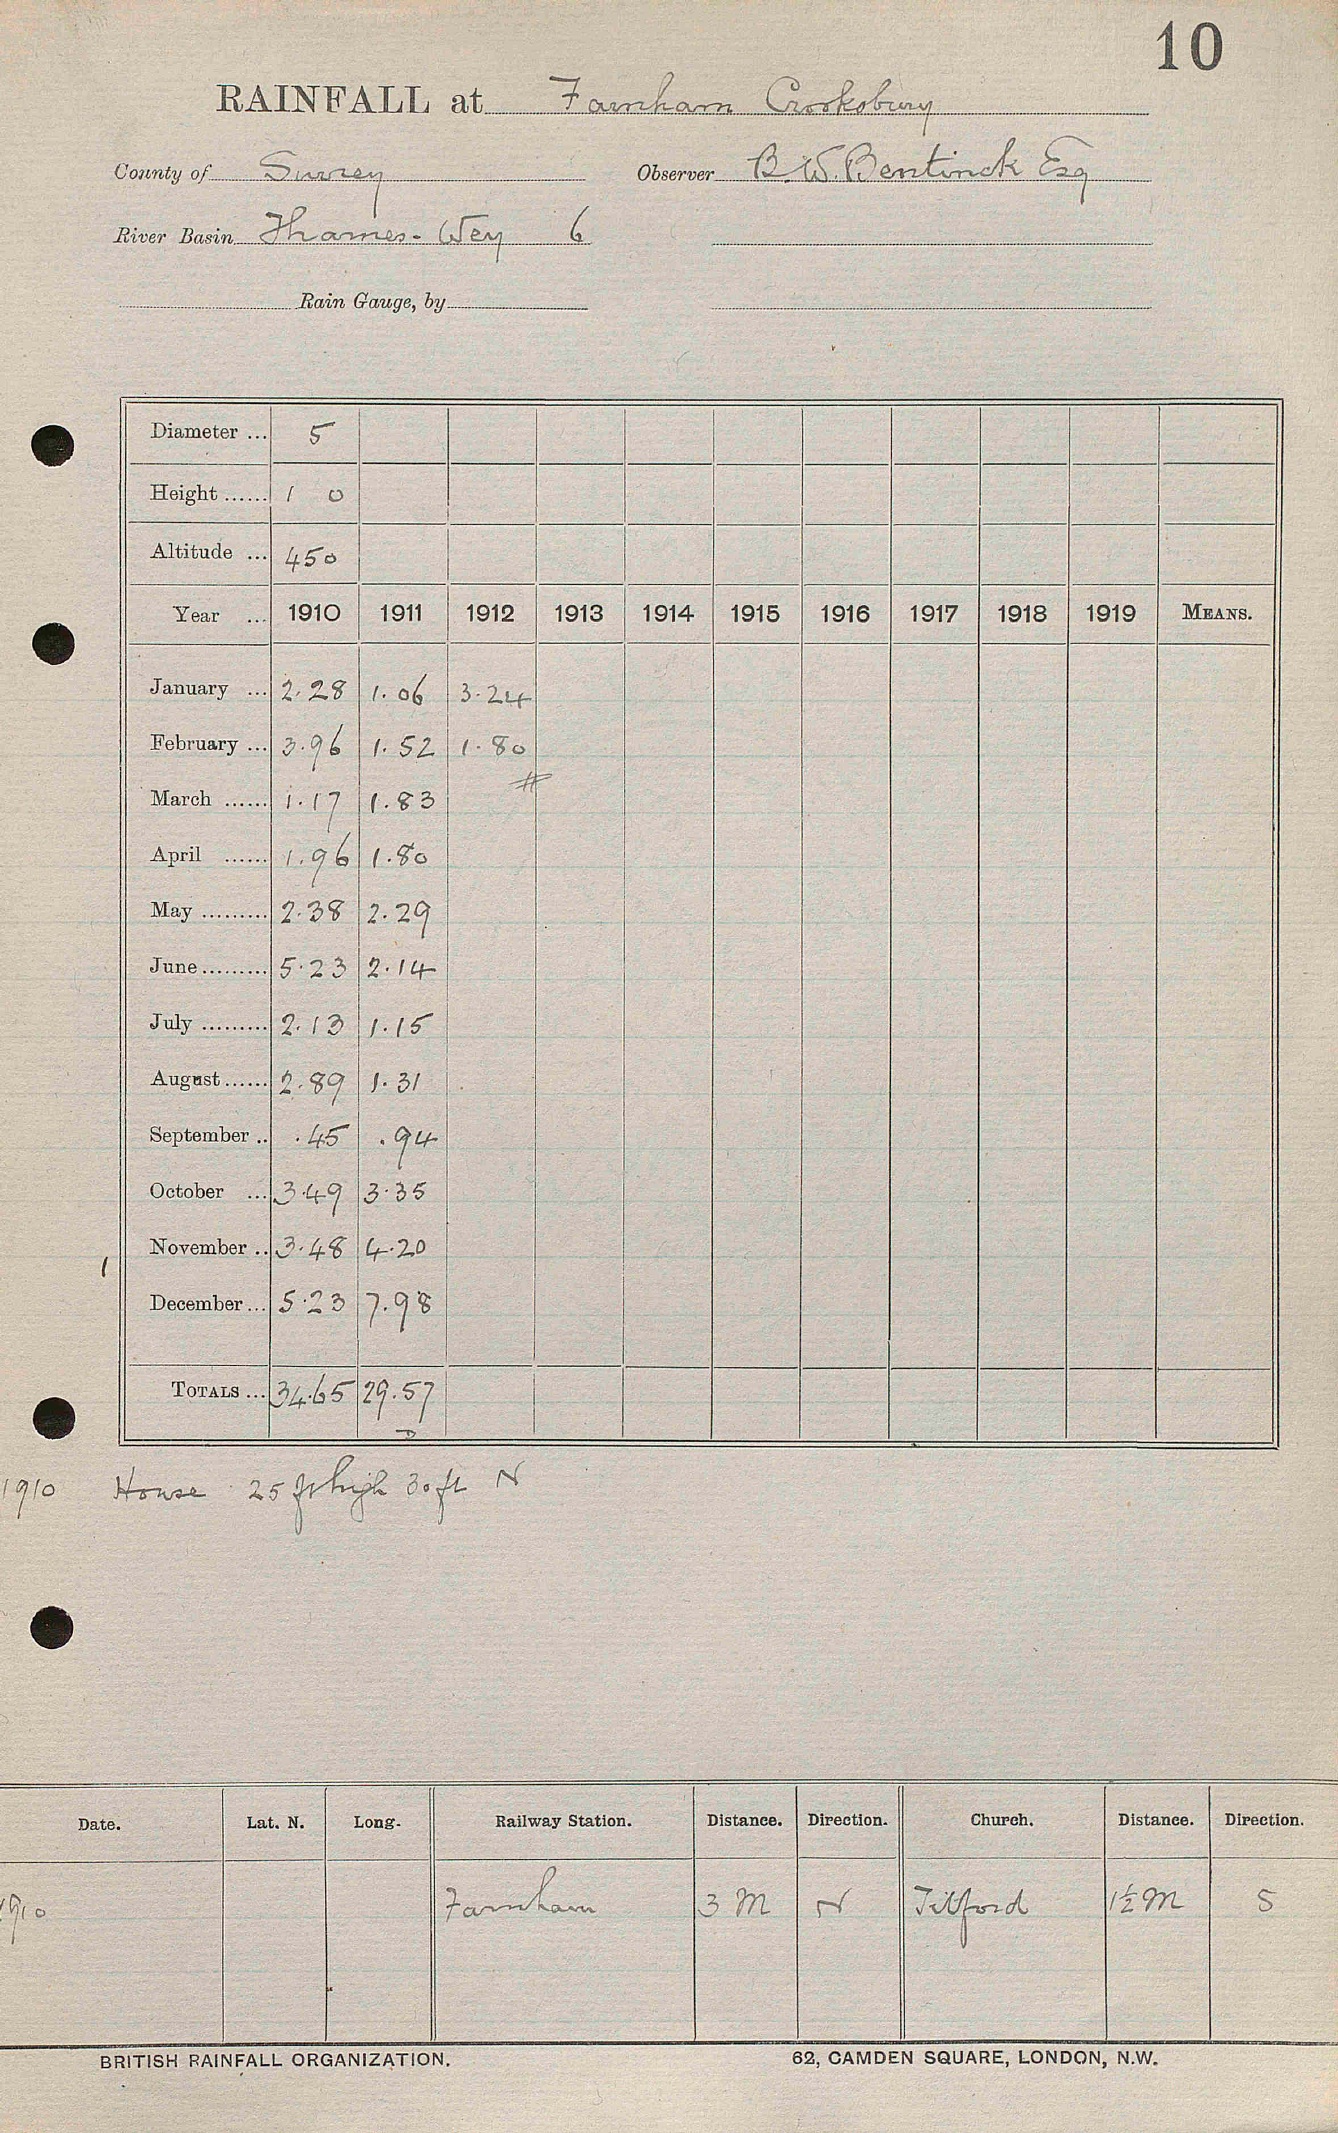 10
RAINFALL at Farnham Crooksbury
County of Surrey Observer B. W. Bentinck Esq
River Basin Thames - Wey 6
Rain Gauge, by
Diameter ... 5
Height ...... 1 0
Altitude ... 450
Year ... 1910 1911 1912 1913 1914 1915 1916 1917 1918 1919 MEANS.
January ... 2.28 1.06 3.24
February ... 3.96 1.52 1.80
March ...... 1.17 1.83
April ...... 1.96 1.80
May ......... 2.38 2.29
June ......... 5.23 2.14
July ......... 2.13 1.15
August ...... 2.89 1.31
September .. .45 .94
October ... 3.49 3.35
November .. 3.48 4.20
December ... 5.23 7.98
TOTALS ... 34.65 29.57
1910 House 25 ft high 30 ft N
Date. Lat. N. Long. Railway Station. Distance. Direction. Church. Distance. Direction.
1910 Farnham 3 M N Tilford 1½ M S
BRITISH RAINFALL ORGANIZATION. 62, CAMDEN SQUARE, LONDON, N.W.